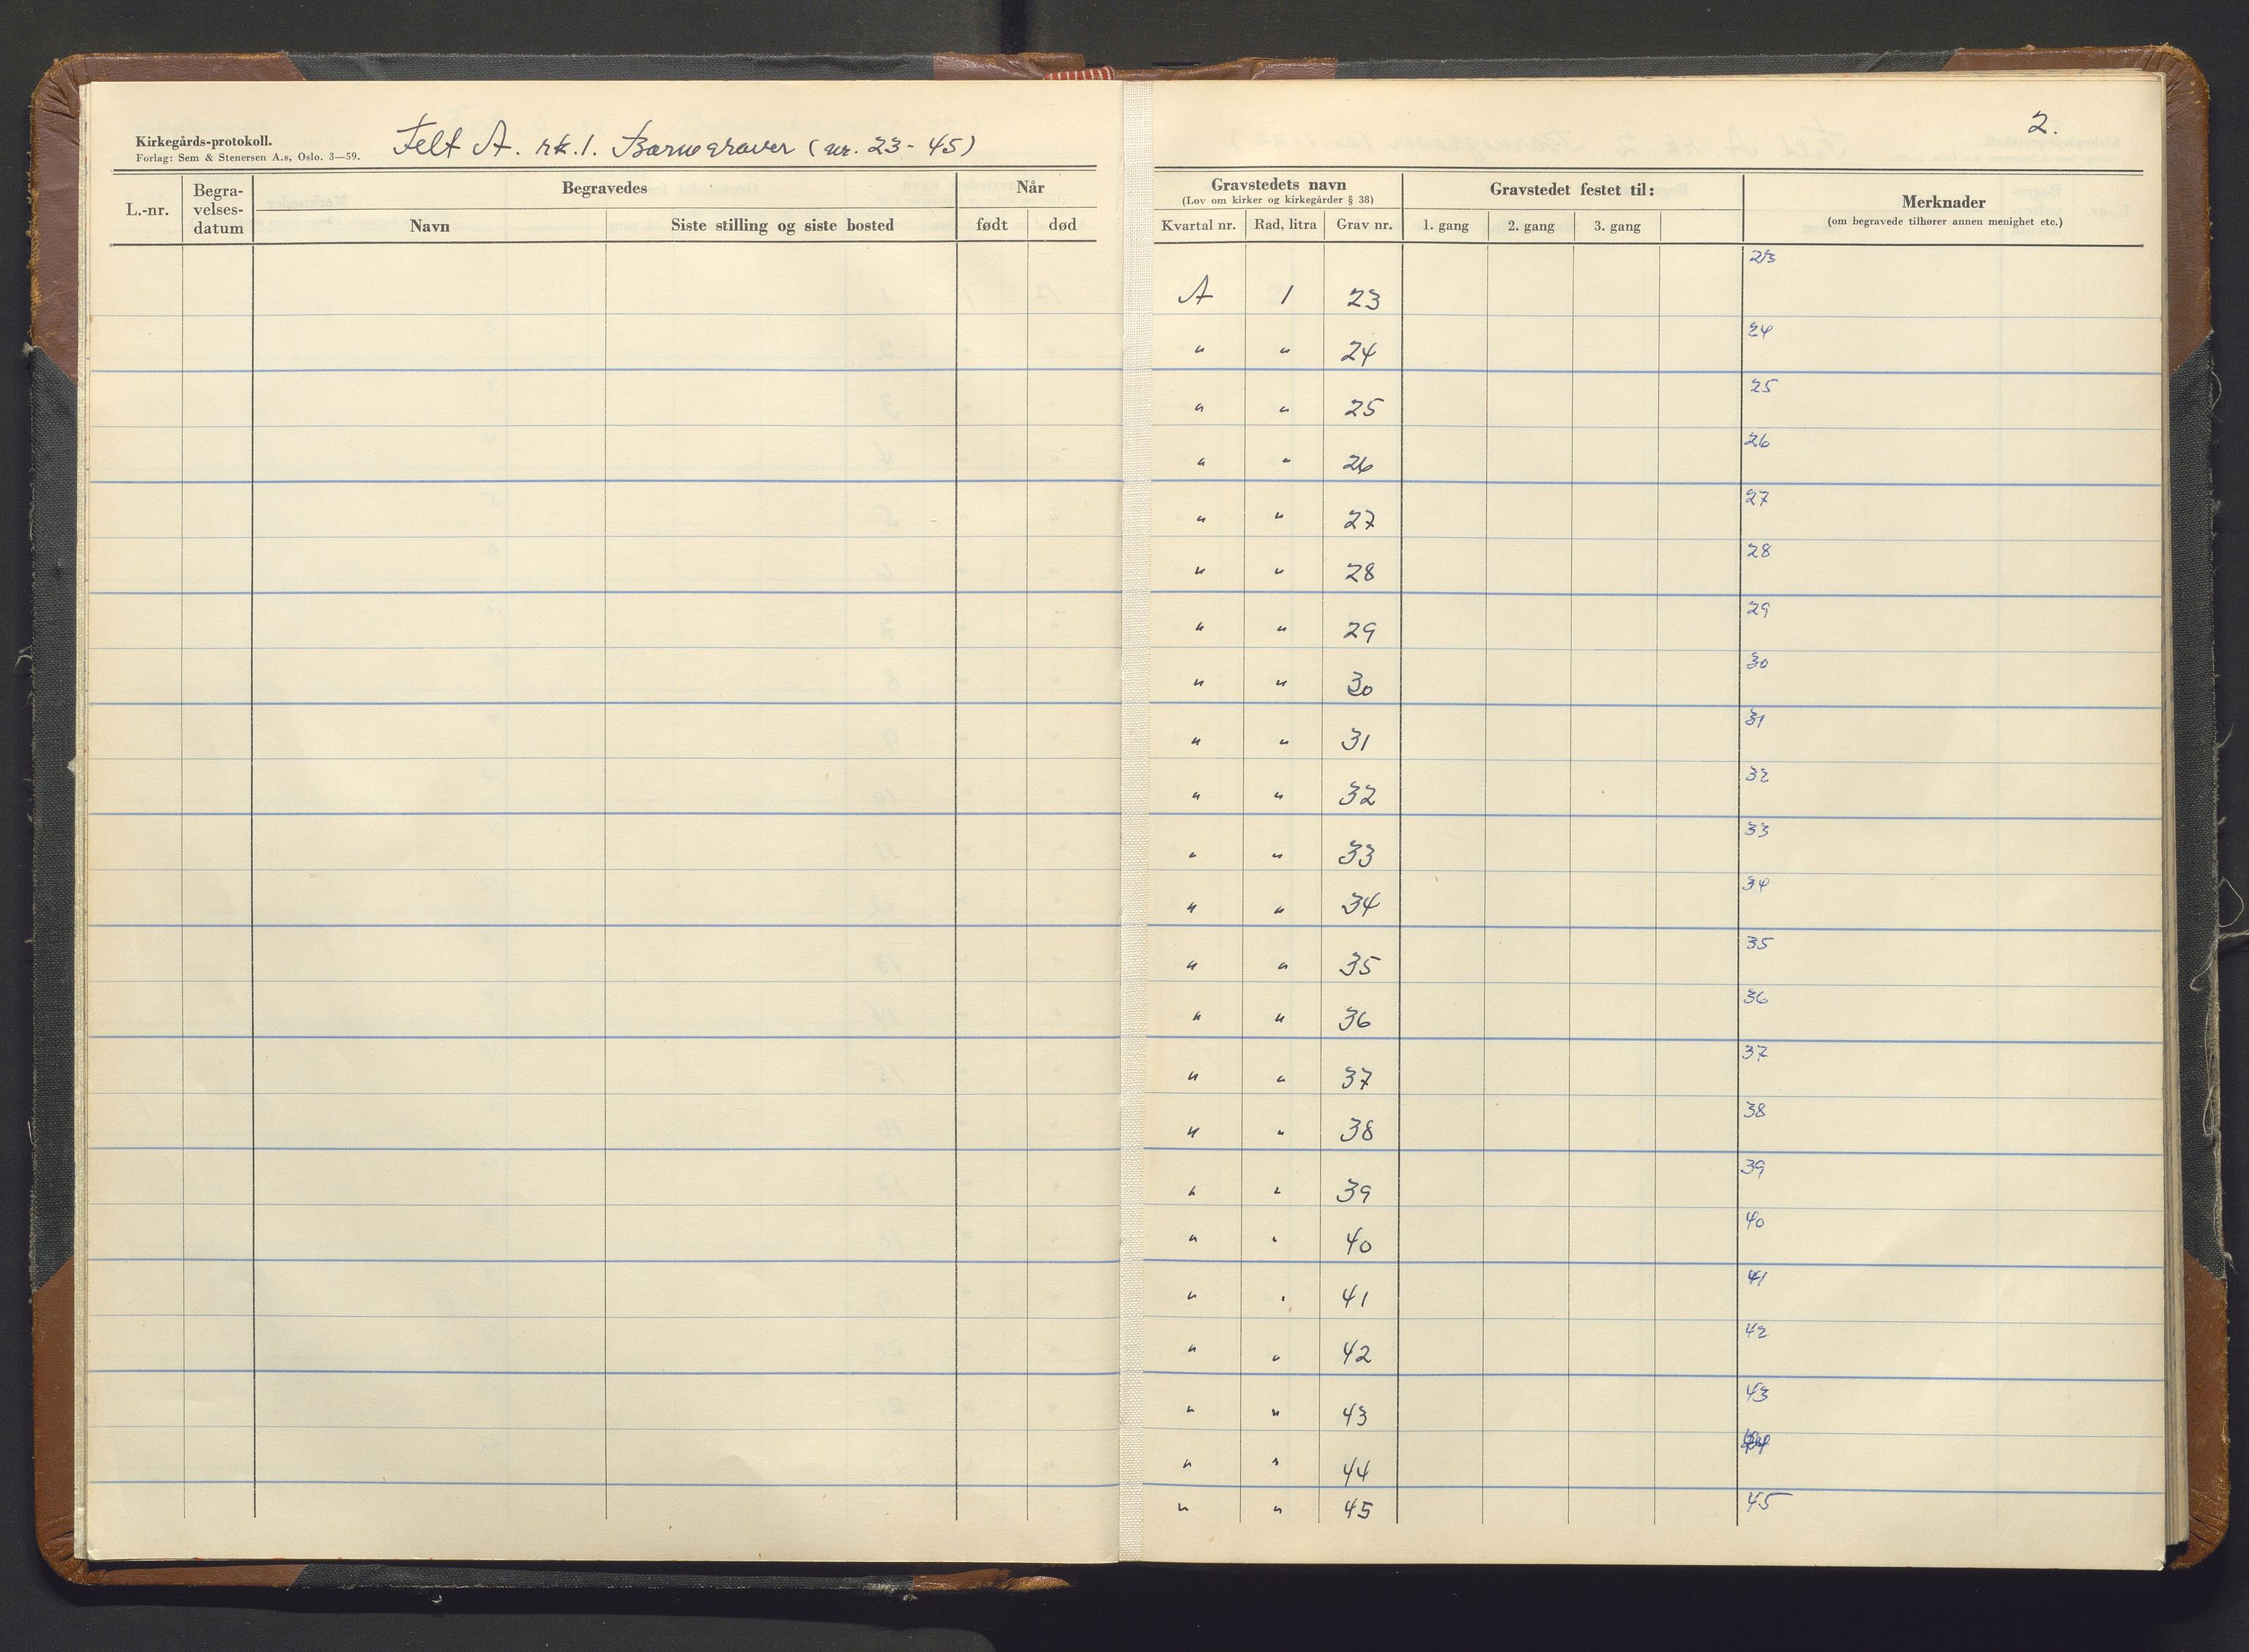 Kirkegårds-protokoll.
Forlag: Sem & Stenersen A.s, Oslo. 3—59.
Felt A. rk. 1. Barnegraver (nr. 23-45)
2.
L.-nr.
Begra-
velses-
datum
Begravedes
Navn
Siste stilling og siste bosted
Når
født død
Gravstedets navn
(Lov om kirker og kirkegårder § 38)
Kvartal nr. Rad, litra Grav nr.
Gravstedet festet til:
1. gang 2. gang 3. gang
Merknader
(om begravede tilhører annen menighet etc.)
A 1 23 23
" " 24 24
" " 25 25
" " 26 26
" " 27 27
" " 28 28
" " 29 29
" " 30 30
" " 31 31
" " 32 32
" " 33 33
" " 34 34
" " 35 35
" " 36 36
" " 37 37
" " 38 38
" " 39 39
" " 40 40
" " 41 41
" " 42 42
" " 43 43
" " 44 44
" " 45 45